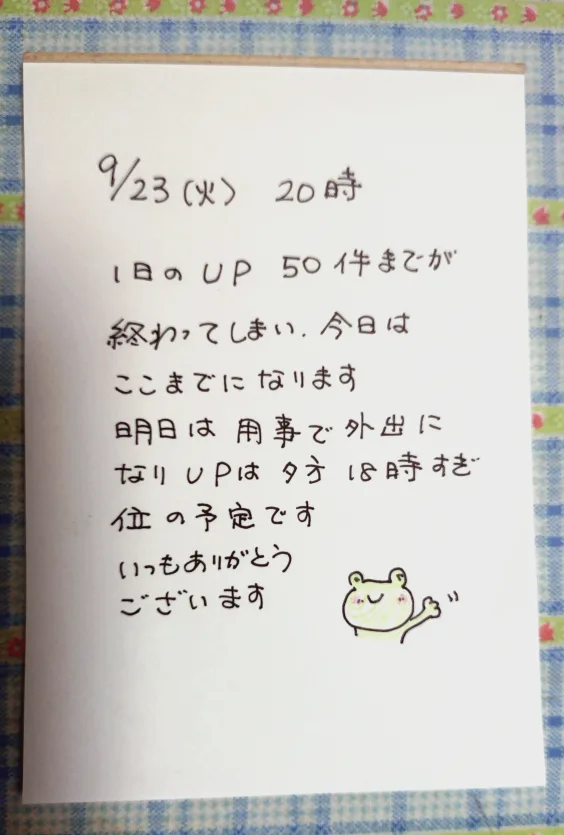 9/23(火) 20時
1日のUP 50件までが
終わってしまい、今日は
ここまでになります
明日は用事で外出に
なりUPは夕方18時すぎ
位の予定です
いつもありがとう
ございます